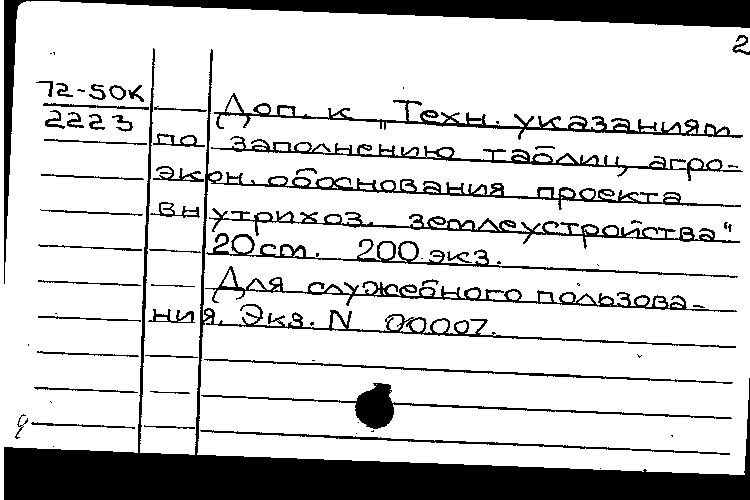 2
72-50К
2223
Доп. к „Техн. указаниям
по заполнению таблиц агро-
экон. обоснования проекта
внутрихоз. землеустройства"
20 ст. 200 экз.
Для служебного пользова-
ния. Экз. N 00007.